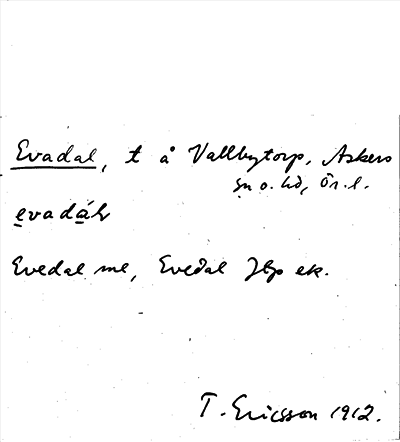 Evadal, t å Vallbytorp, Askers
sn o. hd, Ör. l.
evadáḷ
Evedal ml, Evedal Jbp ek.
T. Ericsson 1912.